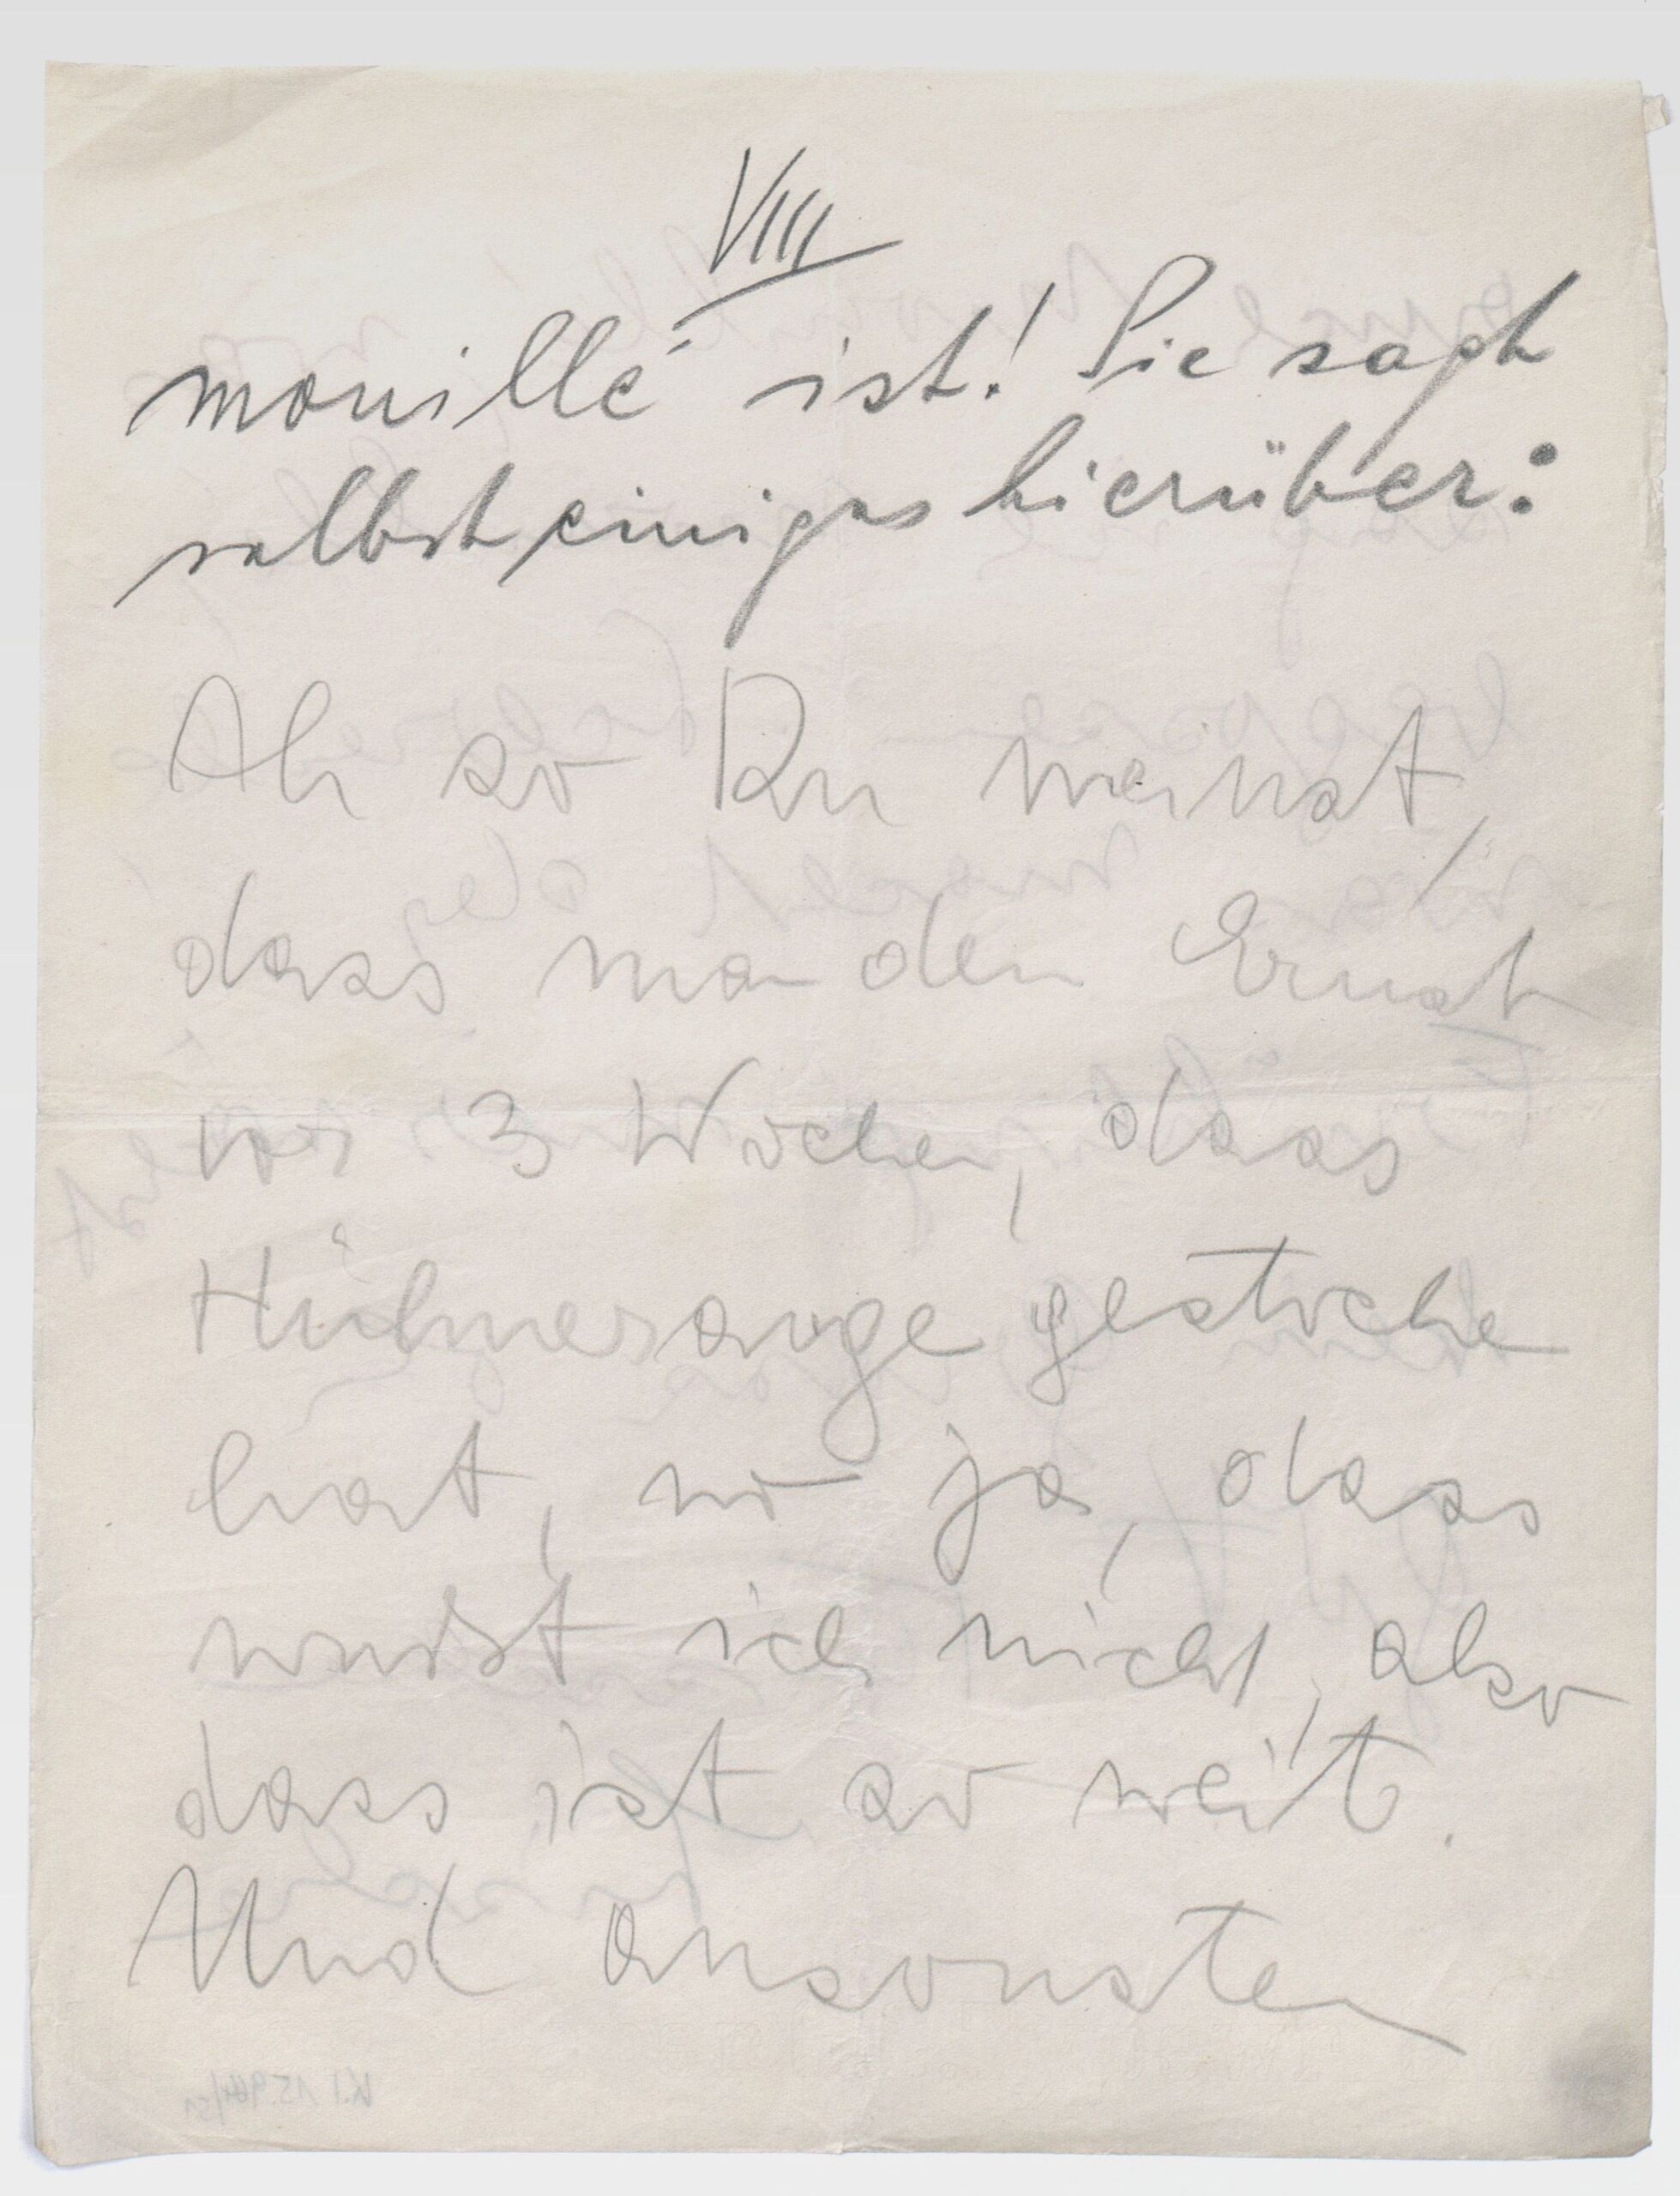 VIII
mouillé ist! Sie sagt
selbst einiges hierüber:
Ah so Du meinst,
dass man den Ernst
vor 3 Wochen, dass
Hühnerauge gestochen
hat, no ja, dass
wusst ich nicht, also
dass ist so weit.
Und ansonsten